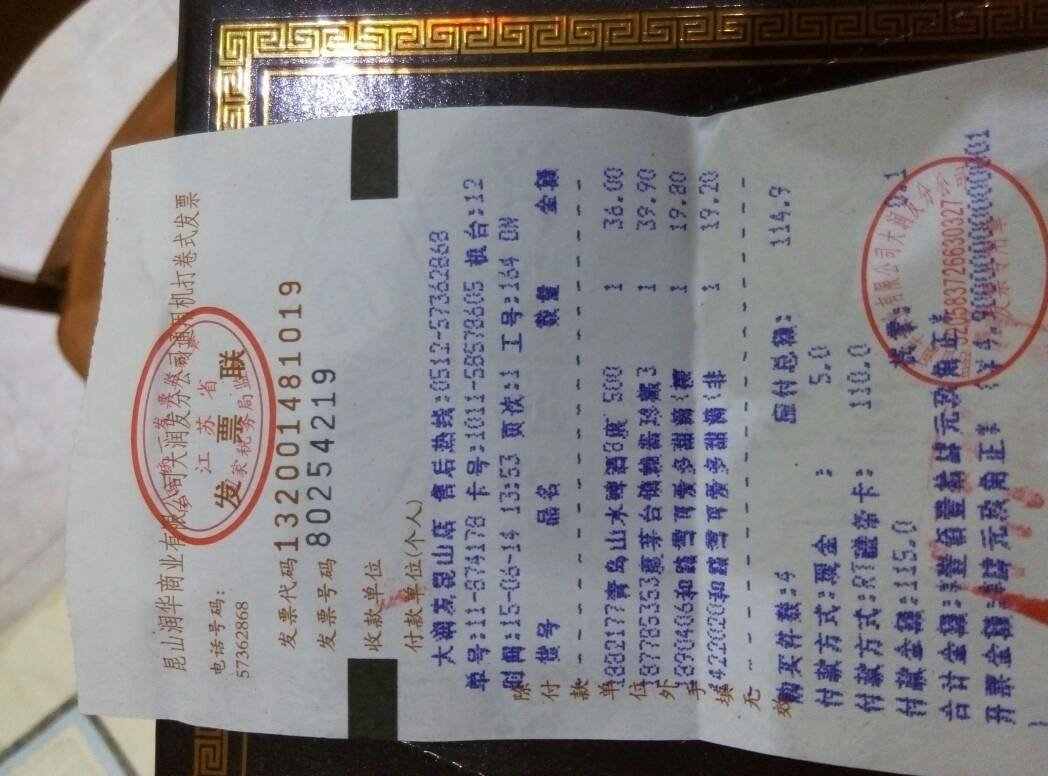 昆山润华商业有限公司大润发分公司通用机打卷式发票
江苏省
发票联
国家税务局监
电话号码:
57362868
发票代码132001481019
发票号码 80254219
收款单位
付款单位(个人)
大润发昆山店 售后热线:0512-57362868
单号:11-874178 卡号:1011-58578605 机台:12
时间:15-06-14 13:53 页次:1 工号:164 DN
货号 品名 数量 金额
1882177青岛山水啤酒8度 500 1 36.00
1 39.90
和路雪可爱多甜 1 19.80
422020和路雪可爱多甜 (非 1 19.20
除付款单位外手填无效
购买件数:4 应付总额: 114.9
付款方式:现金 : 5.0
付款方式:RT 卡: 110.0
付款金额:115.0 找零: 0.1
合计金额: 壹佰壹拾肆元玖角正
开票金额: 肆元玖角正
有限公司大润发分公司
320583726630327
发票专用章